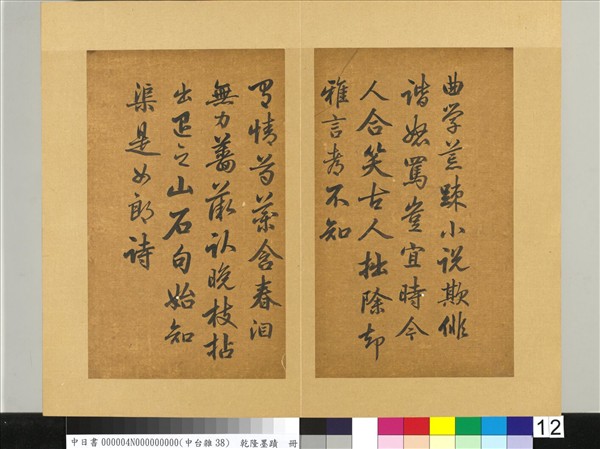 曲学荒踈小说欺俳
谐怒罵豈宜時今
人合笑古人拙除却
雅言都不知
有情芍藥含春泪
無力薔薇卧晚枝拈
出退之山石句始知
渠是女郎詩
中日書 000004N000000000(中台雜38) 乾隆墨蹟 冊
12